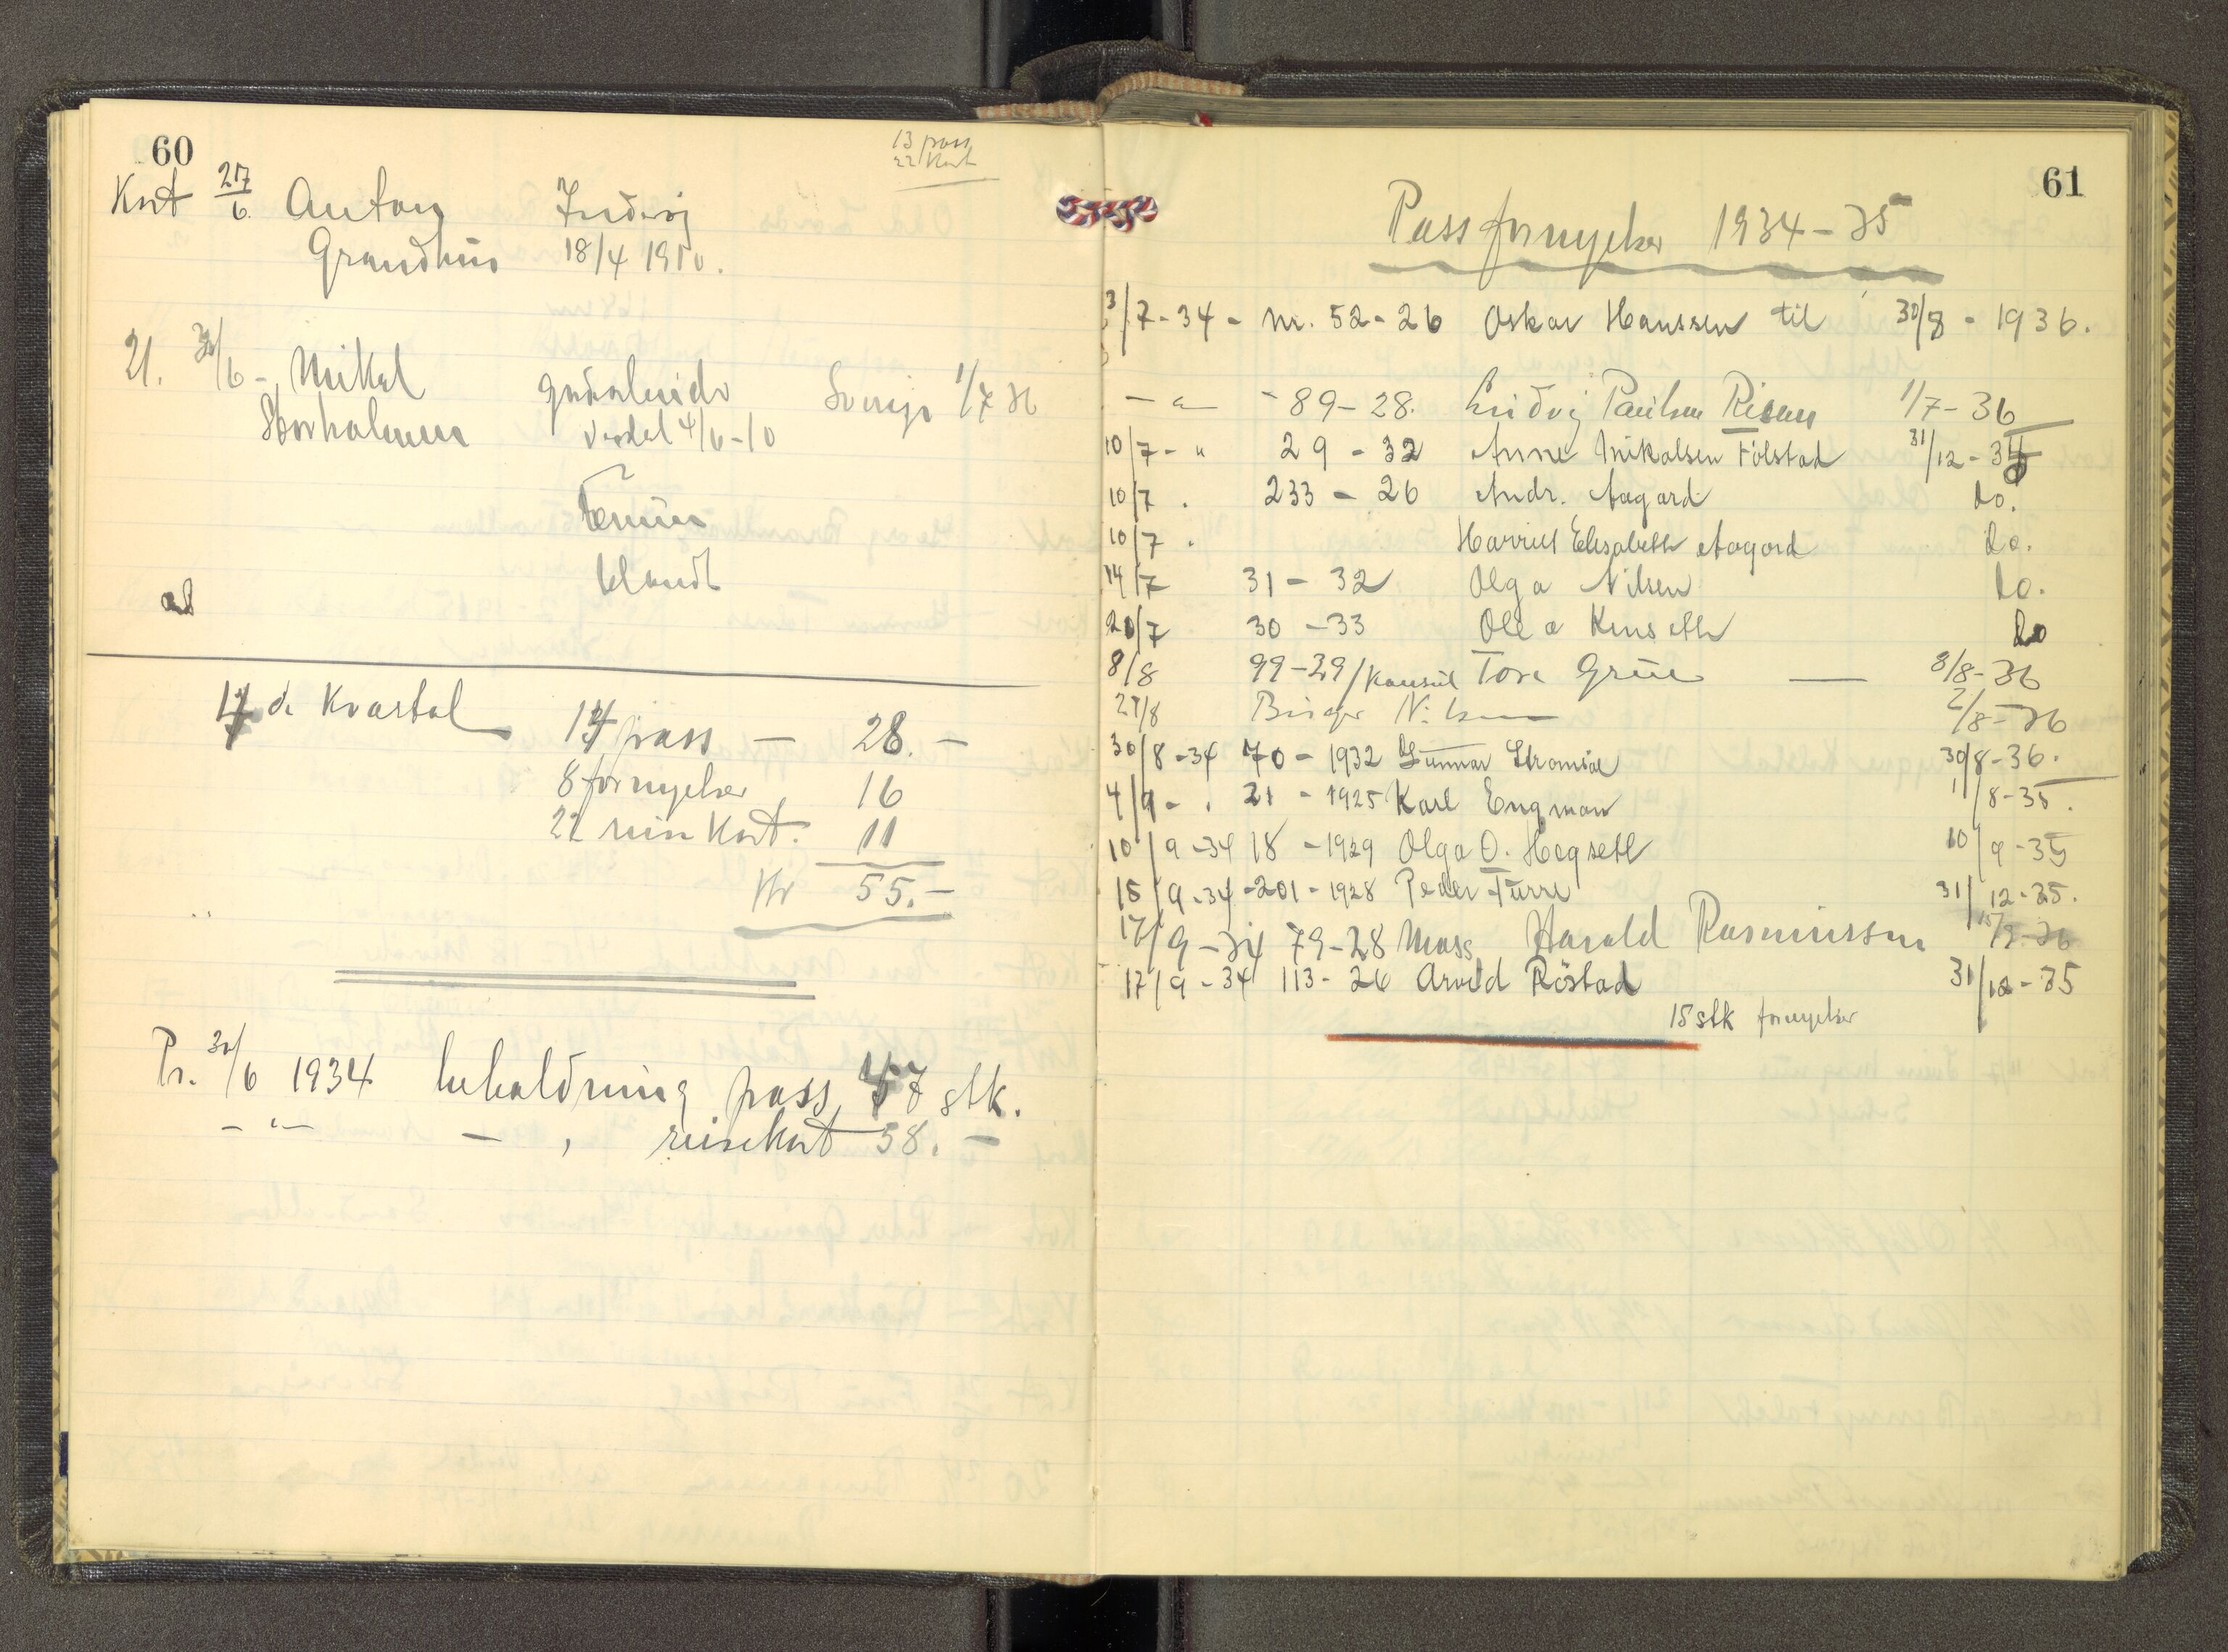 60
13 pass
22 Kort
Kort 27/6. Anton Ludvig
Grandhus 18/4 1910.
21. 30/6 - Mikal Sverige 1/7 36
Storholmen Verdal 4/6-10
blandt
17 de Kvartal 14 pass — 28.—
8 fornyelser 16
22 reise Kort. 11
Kr 55.—
Pr. 30/6 1934 beholdning pass 47 stk.
— " — — , reisekort 58. —
61
Pass fornyelser 1934-35
3/7-34 - nr. 52-26 Oskar Hanssen til 30/8 - 1936.
— " — - 89-28. Ludvig Paulsen Risan 1/7-36
10/7 - " 29 - 32 Anne Mikalsen Fólstad 31/12-35
10/7 . 233 - 26 Andr. Aagard do.
10/7 . Harriet Elisabeth Aagard do.
14/7 31 - 32 Olga Nilsen do.
20/7 30 - 33 Olea do
8/8 99-29/Konsul Tore Grün — 8/8-36
27/8 Birger Nilsen 2/8-36
30/8-34 70 - 1932 Gunnar 30/8-36.
4/9 - . 21 - 1925 Karl Engman 11/8-35.
10/9-34 18 - 1929 Olga O. Hogseth 10/9-35
15/9-34 -201- 1928 Peder Furre 31/12-35.
17/9-34 79-28 Mass Harald Rasmussen 15/9-36
17/9-34 113-26 Arvid Röstad 31/12-35
15 stk fornyelser